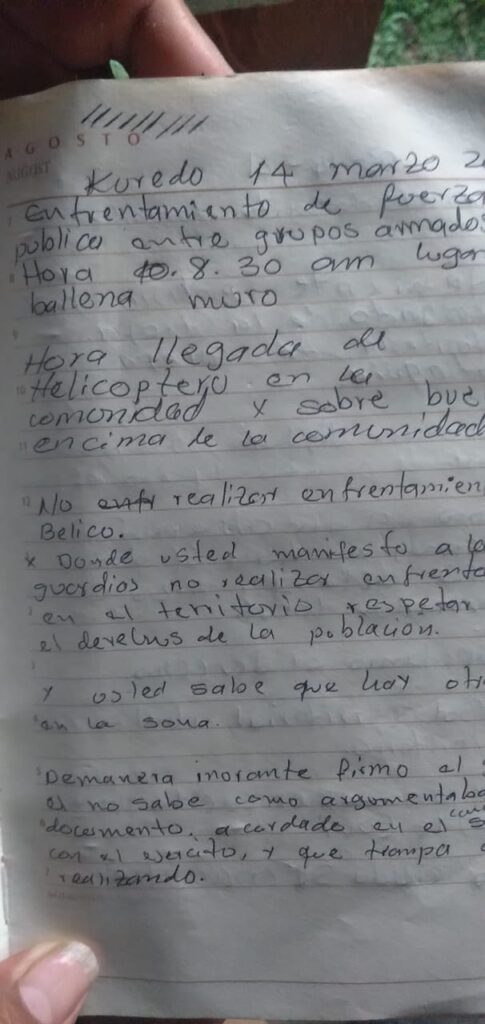 AGOSTO
AUGUST
Kuredo 14 marzo 2
enfrentamiento de fuerza
publica entre grupos armados
Hora 8.30 am lugar
ballena muro
Hora llegada de
Helicoptero en la
comonidad y sobre bue
encima de la comunidad
No realizar enfrentamien
Belico.
x Donde usted manifesto a la
guardios no realizar enfrenta
en el territorio respetar
el derechos de la poblacion.
y usted sabe que hay otr
en la sona.
Demanera inorante firmo el
el no sabe como argumentaba
documento, acordado en el
con el ejercito, y que trampa
realizando.